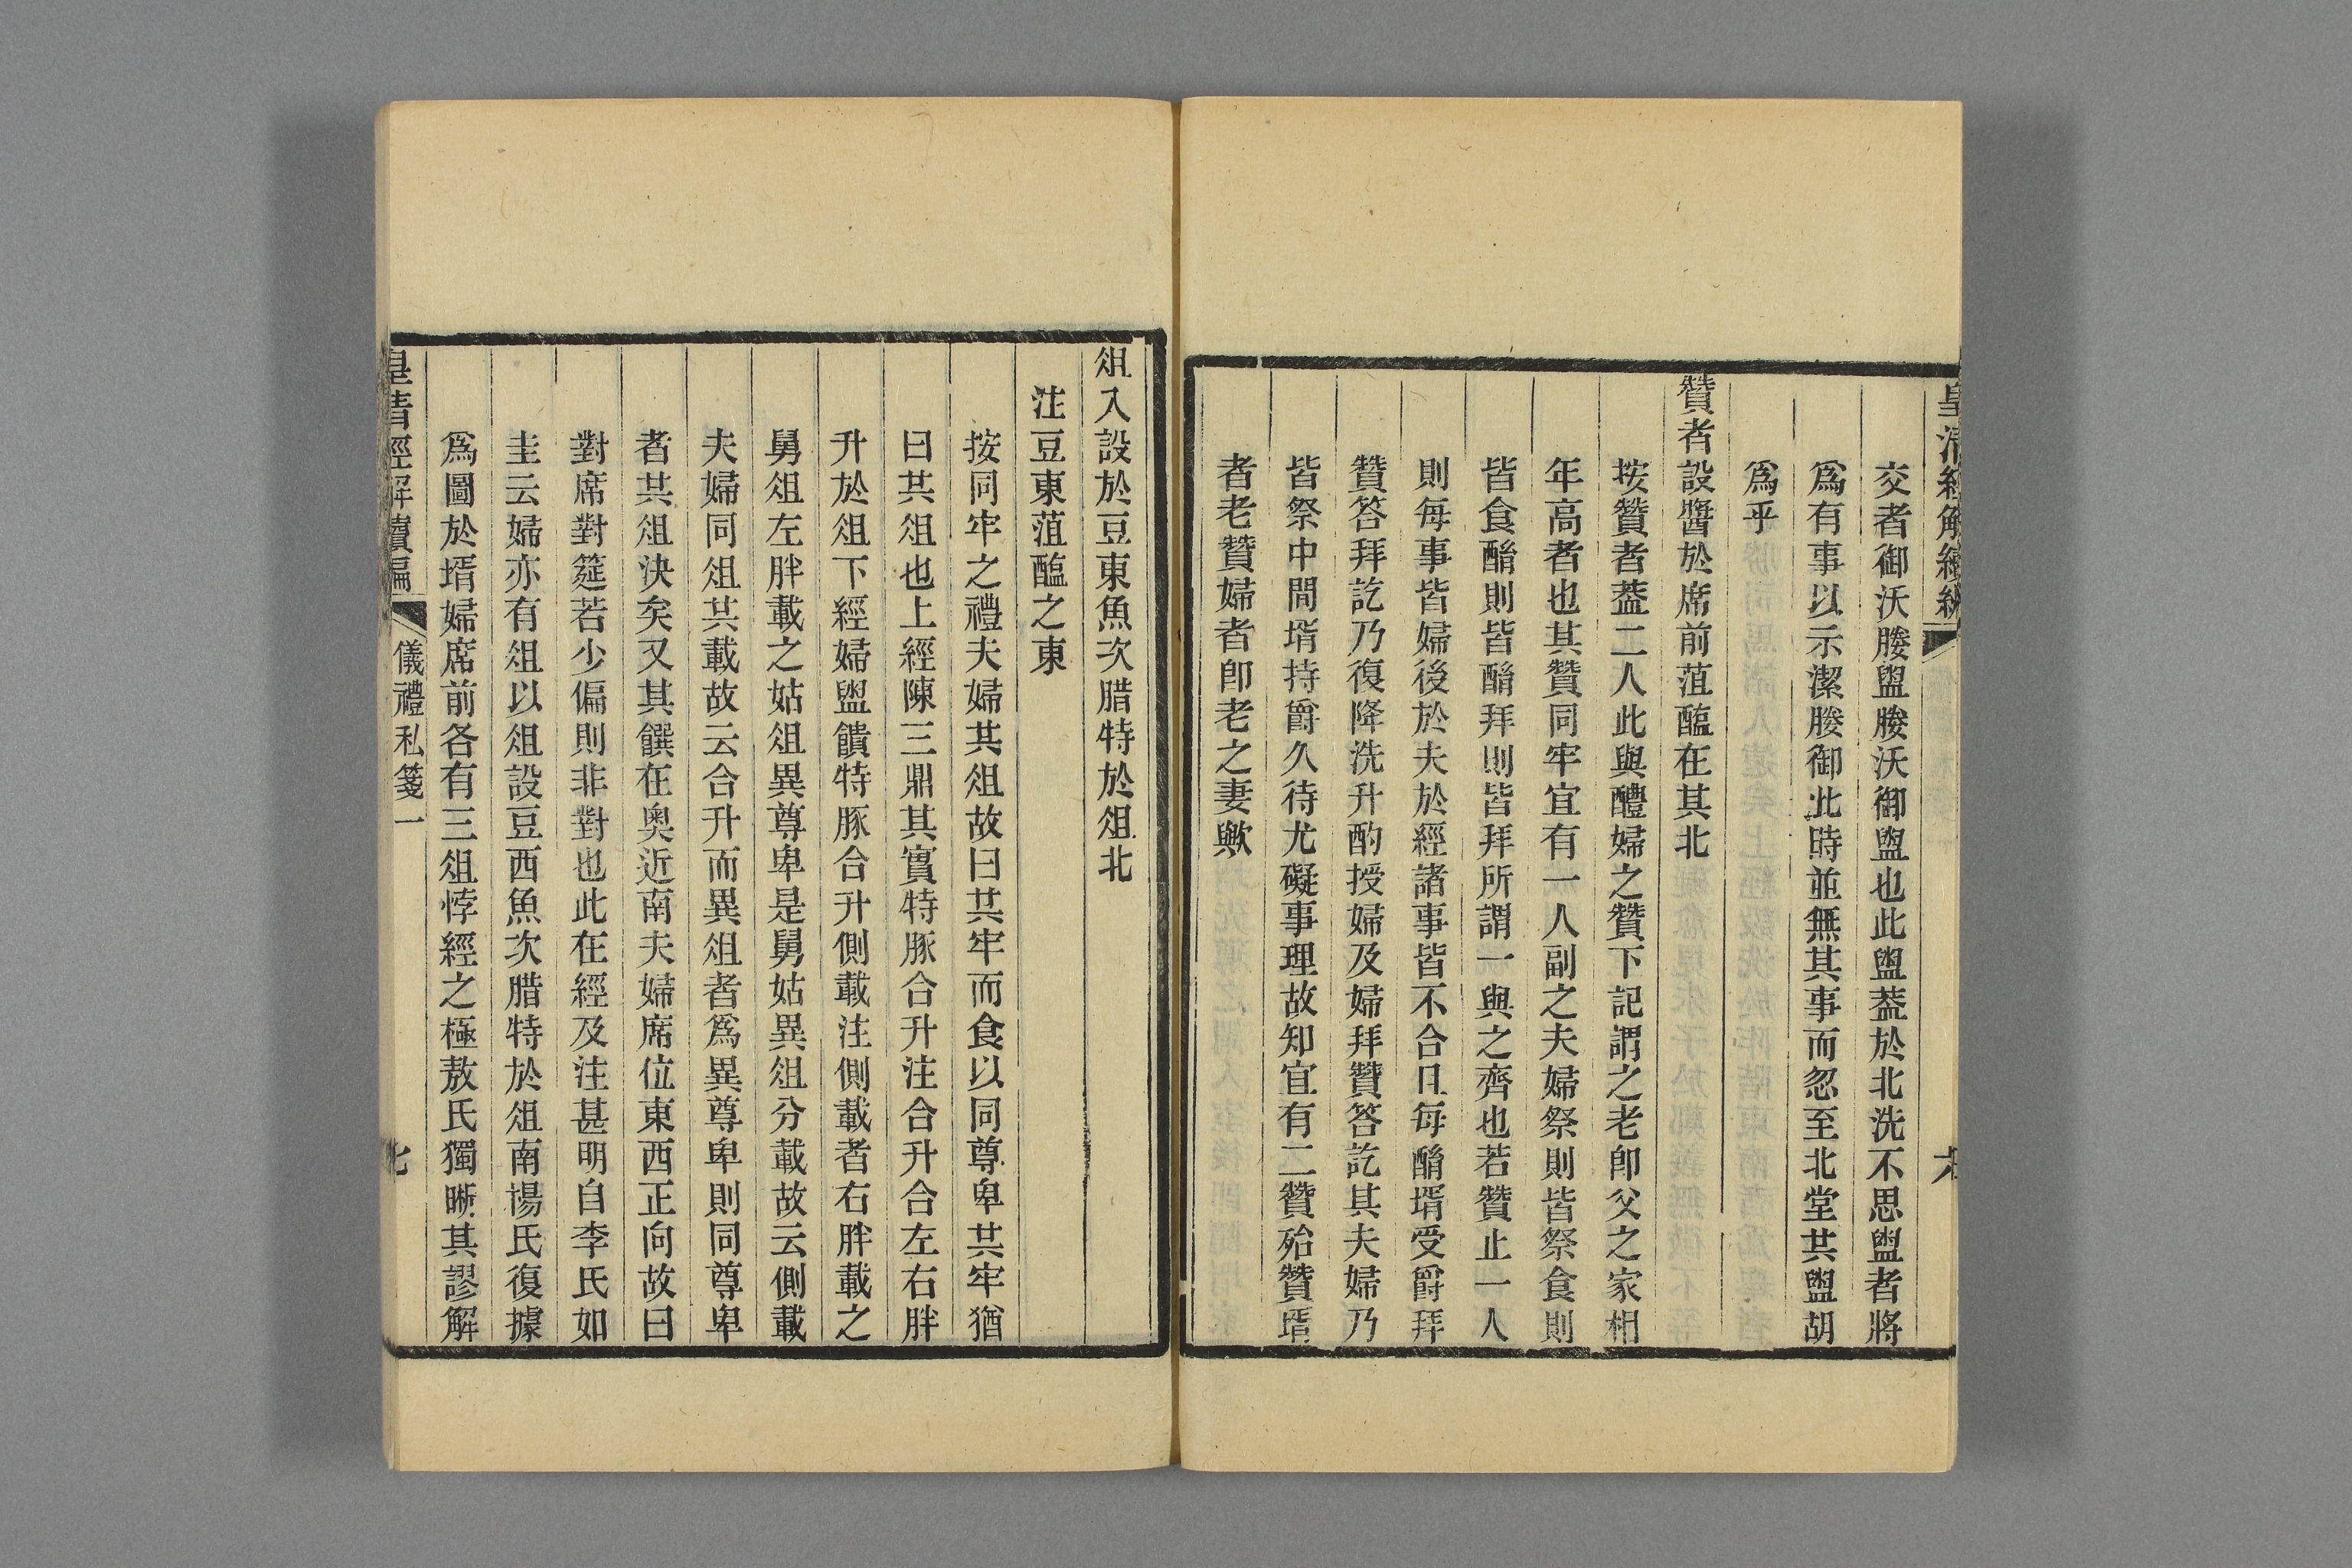 皇清經解續編
交者御沃媵盥媵沃御盥也此盥葢於北洗不思盥者將
爲有事以示潔媵御此時並無其事而忽至北堂其盥胡
爲乎
贊者設醬於席前菹醢在其北
按贊者葢二人此與醴婦之贊下記謂之老卽父之家相
年高者也其贊同牢宜有一人副之夫婦祭則皆祭食則
皆食酳則皆酳拜則皆拜所謂一與之齊也若贊止一人
則每事皆婦後於夫於經諸事皆不合且每酳壻受爵拜
贊答拜訖乃復降洗升酌授婦及婦拜贊答訖其夫婦乃
皆祭中間壻持爵久待尤礙事理故知宜有二贊殆贊壻
者老贊婦者卽老之妻歟
俎入設於豆東魚次腊特於俎北
注豆東菹醢之東
按同牢之禮夫婦共俎故曰共牢而食以同尊卑共牢猶
曰共俎也上經陳三鼎其實特豚合升注合升合左右胖
升於俎下經婦盥饋特豚合升側載注側載者右胖載之
舅俎左胖載之姑俎異尊卑是舅姑異俎分載故云側載
夫婦同俎共載故云合升而異俎者爲異尊卑則同尊卑
者共俎決矣又其饌在奥近南夫婦席位東西正向故曰
對席對筵若少偏則非對也此在經及注甚明自李氏如
圭云婦亦有俎以俎設豆西魚次腊特於俎南楊氏復據
爲圖於壻婦席前各有三俎悖經之極敖氏獨晰其謬解
皇清經解續編 儀禮私箋一